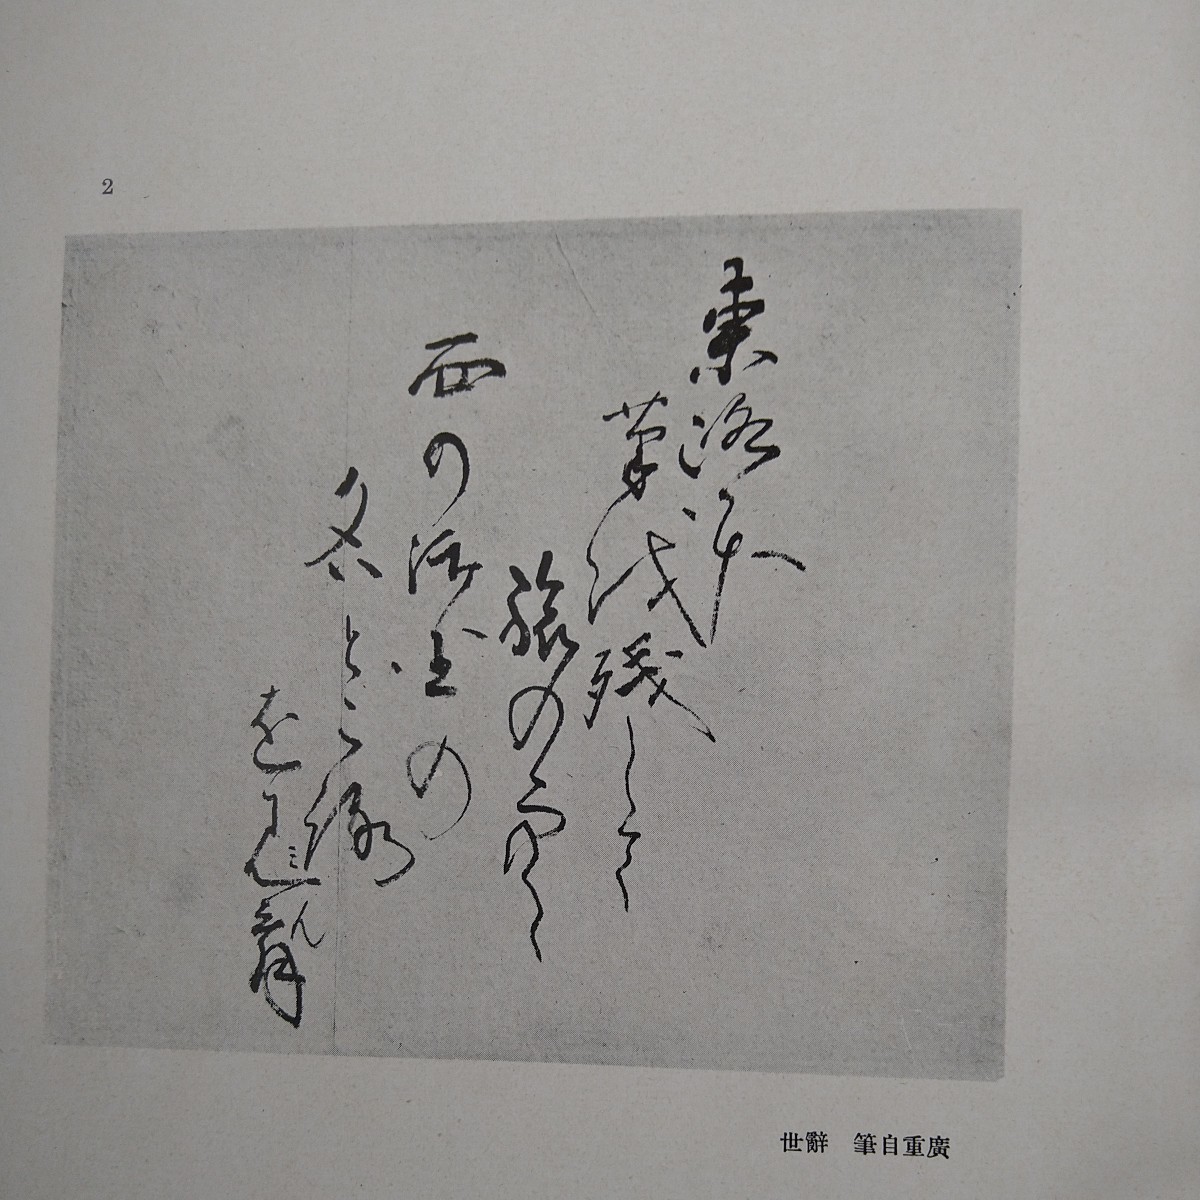 2
東路へ
筆を残して
旅の空
西の御国の
名ところ
を
廣重自筆 辭世